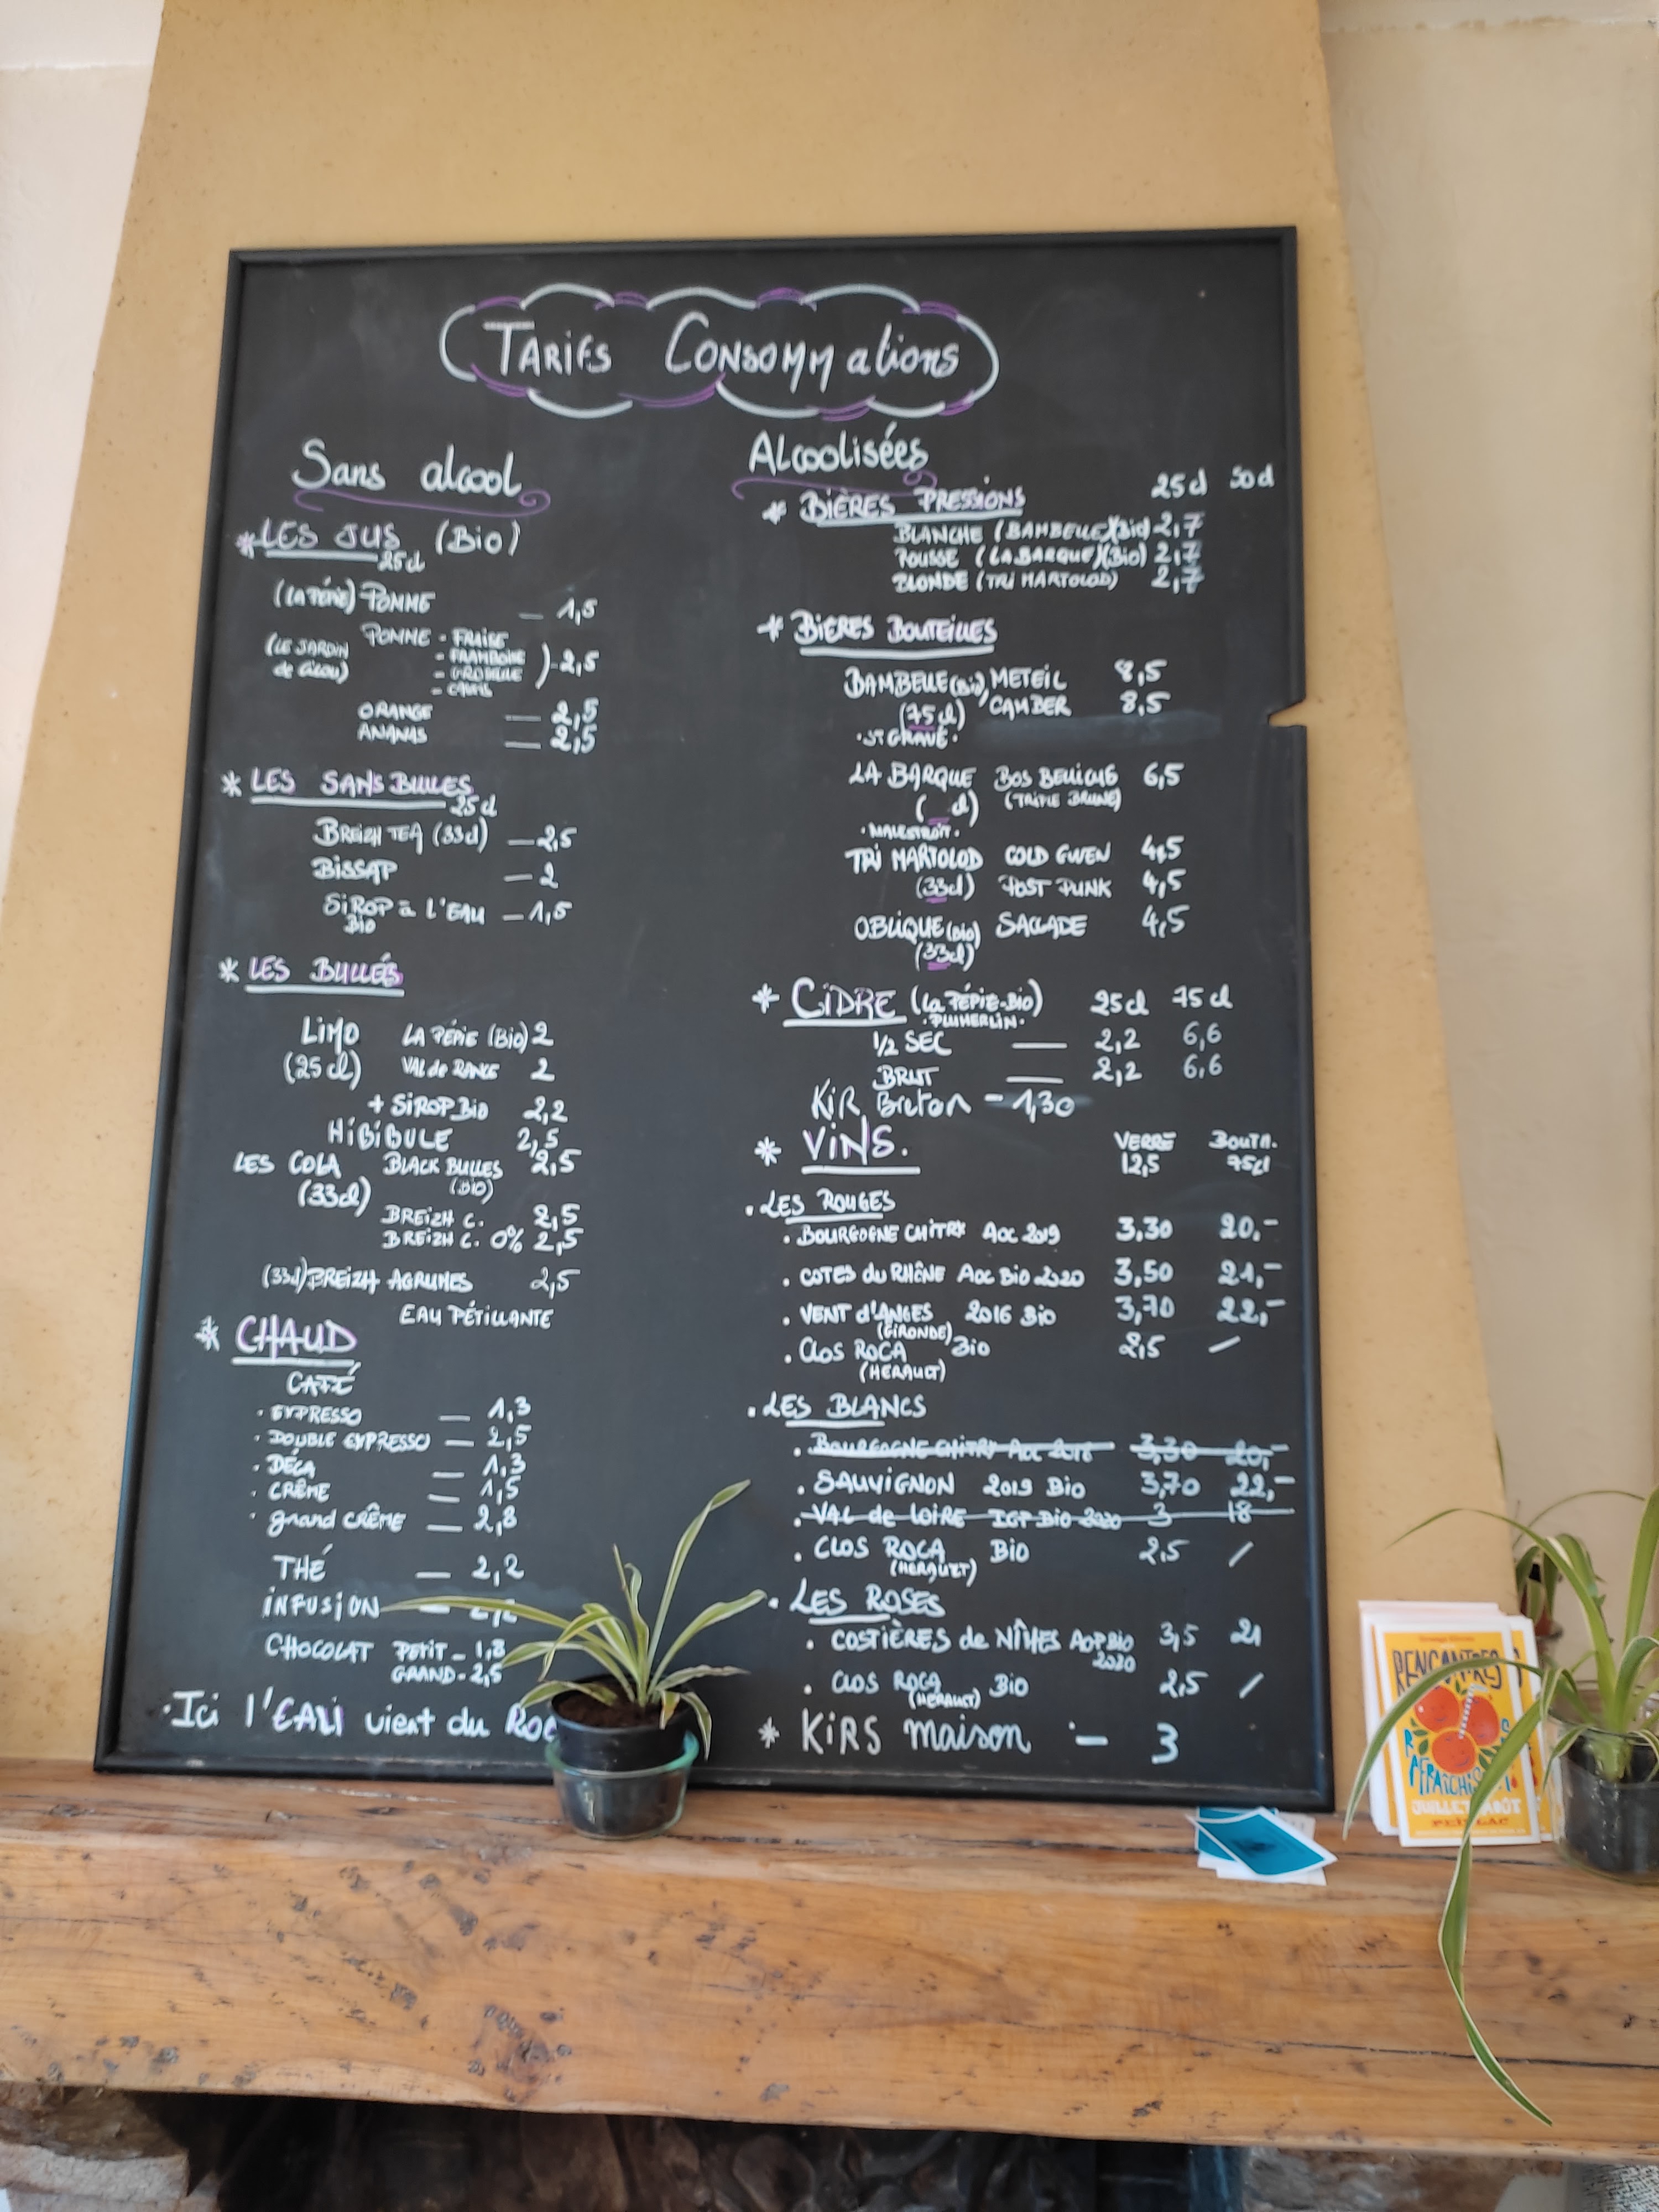 Tarifs Consommations
Sans alcool
* LES JUS (Bio)
25cl
(LA PÉPIE) POMME — 1,5
(LE JARDIN de Gilou) POMME - FRAISE
- FRAMBOISE
- GROSEILLE
- CASSIS
) - 2,5
ORANGE — 2,5
ANANAS — 2,5
* LES SANS BULLES
25cl
BREIZH TEA (33cl) — 2,5
BISSAP — 2
SIROP à L'EAU — 1,5
Bio
* LES BULLES
LIMO LA PÉPIE (Bio) 2
(25cl) VAL de RANCE 2
+ SIROP Bio 2,2
HIBIBULE 2,5
LES COLA BLACK BULLES 2,5
(33cl) (BIO)
BREIZH C. 2,5
BREIZH C. 0% 2,5
(33cl) BREIZH AGRUMES 2,5
EAU PÉTILLANTE
* CHAUD
CAFÉ
. EXPRESSO — 1,3
. DOUBLE EXPRESSO — 2,5
. DÉCA — 1,3
. CRÊME — 1,5
. grand CRÊME — 2,8
THÉ — 2,2
INFUSION —
CHOCOLAT PETIT - 1,8
GRAND - 2,5
. Ici l'EAU vient du
Alcoolisées
* BIÈRES PRESSIONS 25cl 50cl
BLANCHE (BAMBELLE)(Bio) 2,7
ROUSSE (LA BARQUE)(Bio) 2,7
BLONDE (TRI MARTOLOD) 2,7
* BIERES BOUTEILLES
BAMBELLE (Bio) METEIL 8,5
(75cl) CAMBER 8,5
. ST GRAVÉ .
LA BARQUE 6,5
( cl) (TRIPLE BRUNE)
. MALESTROIT .
TRI MARTOLOD COLD GWEN 4,5
(33cl) POST PUNK 4,5
OBLIQUE (Bio) SACCADE 4,5
(33cl)
* CIDRE (La PÉPIE-Bio) 25cl 75cl
. PLUHERLIN .
1/2 SEC — 2,2 6,6
BRUT — 2,2 6,6
KIR Breton - 1,30
* VINS. VERRE BOUTH.
12,5 75cl
. LES ROUGES
. BOURGOGNE CHITRY AOC 2019 3,30 20,-
. COTES du RHÔNE AOC BIO 2020 3,50 21,-
. VENT d'ANGES 2016 Bio 3,70 22,-
(GIRONDE)
. CLOS ROCA Bio 2,5 /
(HERAULT)
. LES BLANCS
. BOURGOGNE CHITRY AOC 2018 3,30 20,-
. SAUVIGNON 2019 Bio 3,70 22,-
. VAL de LOIRE IGP BIO 2020 3 18
. CLOS ROCA Bio 2,5 /
(HERAULT)
. LES ROSES
. COSTIÈRES de NÎMES AOP BIO 3,5 21
2020
. CLOS ROCA Bio 2,5 /
(HERAULT)
* KIRS maison - 3
RENCONTRES
RAFRAÎCHI
JUILLET AOÛT
PEILLAC